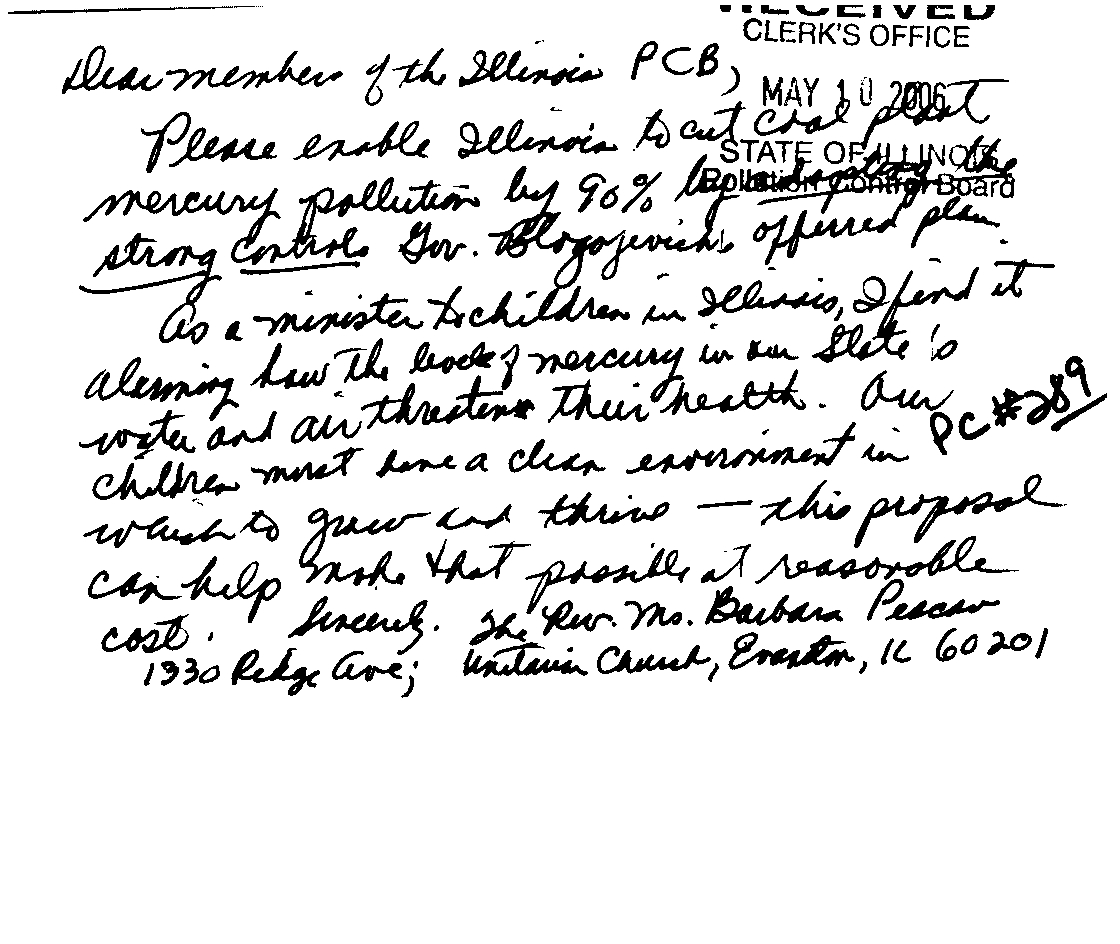 RECEIVED
CLERK'S OFFICE
MAY 10 2006
STATE OF ILLINOIS
Pollution Control Board
Dear members of the Illinois PCB,
Please enable Illinois to cut coal plant
mercury pollution by 90% by adopting the
strong controls Gov. Blagojevich's offerred plan.
As a minister to children in Illinois, I find it
alarming how the level of mercury in our State's
water and air threatens their health. Our
children must have a clean environment in
PC #289
which to grow and thrive — this proposal
can help make that possible at reasonable
cost. Sincerely. The Rev. Ms. Barbara Pescan
1330 Ridge Ave; Unitarian Church, Evanston, IL 60201